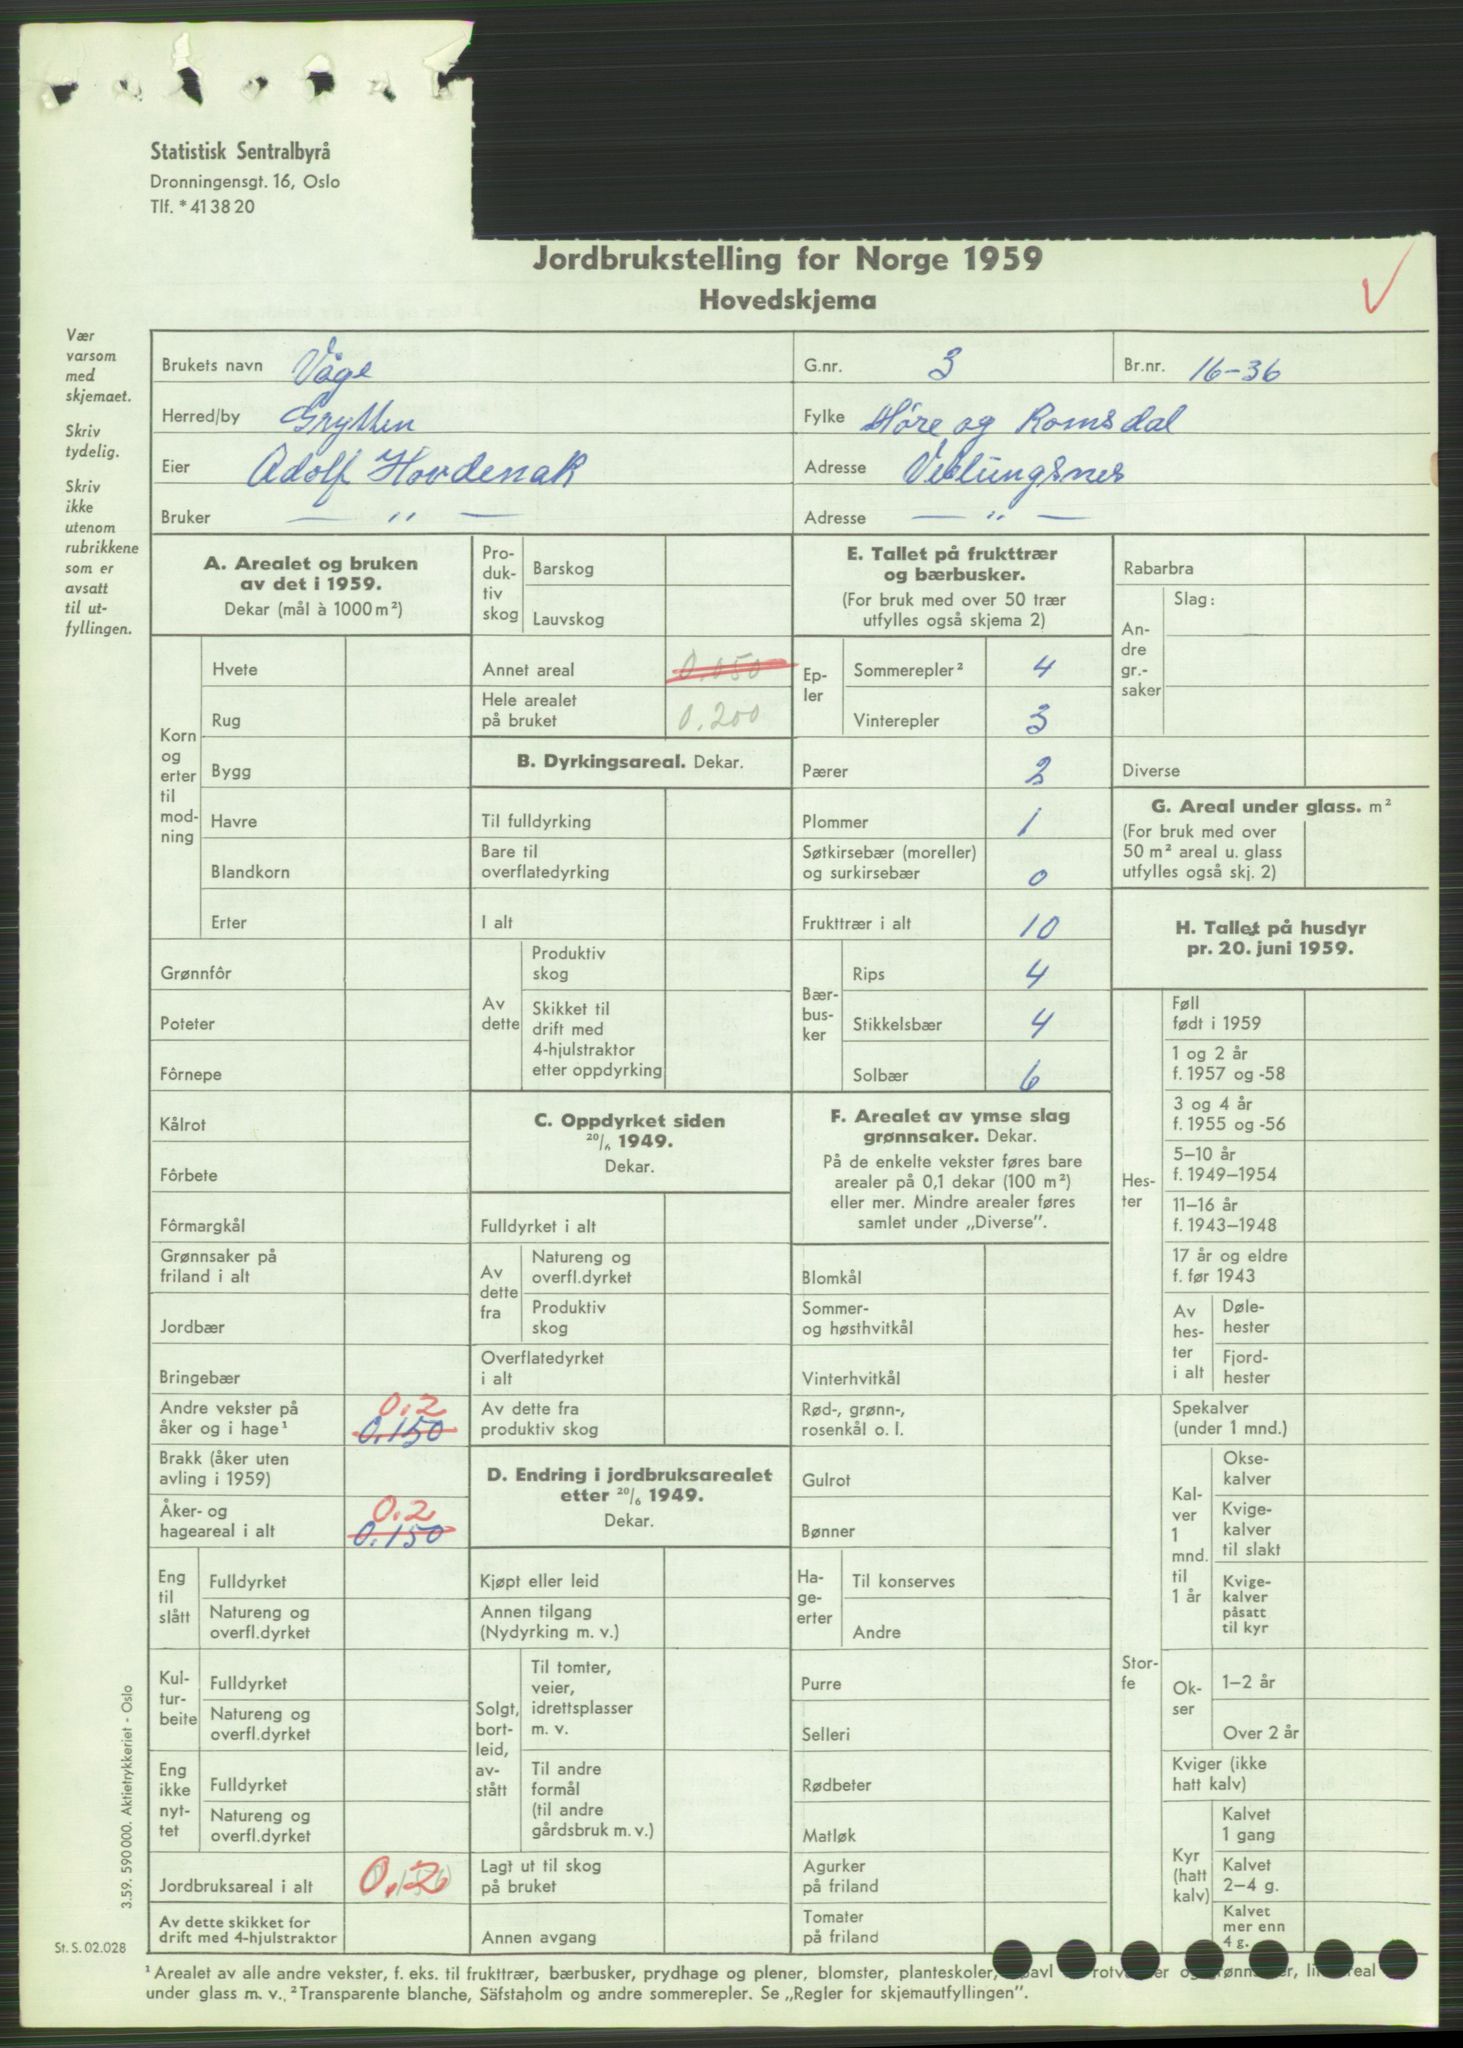 Statistisk Sentralbyrå
Dronningensgt. 16, Oslo
Tlf. * 41 38 20
Jordbrukstelling for Norge 1959
Hovedskjema
Vær
varsom
med
skjemaet.
Skriv
tydelig.
Skriv
ikke
utenom
rubrikkene
som er
avsatt
til ut-
fyllingen.
Brukets navn Våge
G.nr. 3
Br.nr. 16-36
Herred/by Grytten
Fylke Møre og Romsdal
Eier Adolf Hovdenak
Adresse Veblungsnes
Bruker — " —
Adresse — " —
A. Arealet og bruken
av det i 1959.
Dekar (mål à 1000 m²)
Korn
og
erter
til
mod-
ning
Hvete
Rug
Bygg
Havre
Blandkorn
Erter
Grønnfôr
Poteter
Fôrnepe
Kålrot
Fôrbete
Fôrmargkål
Grønnsaker på
friland i alt
Jordbær
Bringebær
Andre vekster på 0.2
åker og i hage¹ 0.150
Brakk (åker uten
avling i 1959)
Åker- og 0.2
hageareal i alt 0.150
Eng
til
slått
Fulldyrket
Natureng og
overfl.dyrket
Kul-
tur-
beite
Fulldyrket
Natureng og
overfl.dyrket
Eng
ikke
nyt-
tet
Fulldyrket
Natureng og
overfl.dyrket
Jordbruksareal i alt 0.2
Av dette skikket for
drift med 4-hjulstraktor
Pro-
duk-
tiv
skog
Barskog
Lauvskog
Annet areal 0.050
Hele arealet
på bruket 0.200
B. Dyrkingsareal. Dekar.
Til fulldyrking
Bare til
overflatedyrking
I alt
Av
dette
Produktiv
skog
Skikket til
drift med
4-hjulstraktor
etter oppdyrking
C. Oppdyrket siden
20/6 1949.
Dekar.
Fulldyrket i alt
Av
dette
fra
Natureng og
overfl.dyrket
Produktiv
skog
Overflatedyrket
i alt
Av dette fra
produktiv skog
D. Endring i jordbruksarealet
etter 20/6 1949.
Dekar.
Kjøpt eller leid
Annen tilgang
(Nydyrking m. v.)
Solgt,
bort-
leid,
av-
stått
Til tomter,
veier,
idrettsplasser
m. v.
Til andre
formål
(til andre
gårdsbruk m. v.)
Lagt ut til skog
på bruket
Annen avgang
E. Tallet på frukttrær
og bærbusker.
(For bruk med over 50 trær
utfylles også skjema 2)
Ep-
ler
Sommerepler² 4
Vinterepler 3
Pærer 2
Plommer 1
Søtkirsebær (moreller)
og surkirsebær 0
Frukttrær i alt 10
Bær-
bus-
ker
Rips 4
Stikkelsbær 4
Solbær 6
F. Arealet av ymse slag
grønnsaker. Dekar.
På de enkelte vekster føres bare
arealer på 0,1 dekar (100 m²)
eller mer. Mindre arealer føres
samlet under „Diverse”.
Blomkål
Sommer-
og høsthvitkål
Vinterhvitkål
Rød-, grønn-,
rosenkål o. l.
Gulrot
Bønner
Ha-
ge-
erter
Til konserves
Andre
Purre
Selleri
Rødbeter
Matløk
Agurker
på friland
Tomater
på friland
Rabarbra
An-
dre
gr.-
saker
Slag:
Diverse
G. Areal under glass. m²
(For bruk med over
50 m² areal u. glass
utfylles også skj. 2)
H. Tallet på husdyr
pr. 20. juni 1959.
Hes-
ter
Føll
født i 1959
1 og 2 år
f. 1957 og -58
3 og 4 år
f. 1955 og -56
5–10 år
f. 1949–1954
11–16 år
f. 1943–1948
17 år og eldre
f. før 1943
Av
hes-
ter
i alt
Døle-
hester
Fjord-
hester
Stor-
fe
Spekalver
(under 1 mnd.)
Kal-
ver
1
mnd.
til
1 år
Okse-
kalver
Kvige-
kalver
til slakt
Kvige-
kalver
påsatt
til kyr
Ok-
ser
1–2 år
Over 2 år
Kviger (ikke
hatt kalv)
Kyr
(hatt
kalv)
Kalvet
1 gang
Kalvet
2–4 g.
Kalvet
mer enn
4 g.
3.59. 590 000. Aktietrykkeriet - Oslo
St. S. 02.028
¹ Arealet av alle andre vekster, f. eks. til frukttrær, bærbusker, prydhage og plener, blomster, planteskoler,
under glass m. v. ² Transparente blanche, Säfstaholm og andre sommerepler. Se „Regler for skjemautfyllingen”.